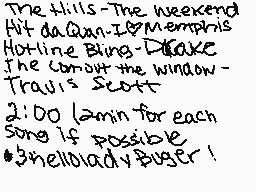 The Hills-The weekend
Hit da Quan-I♡Memphis
Hotline Bling-Drake
The out the window-
Travis Scott
2:00 (2min for each
song if possible
•3helloladyBuger!